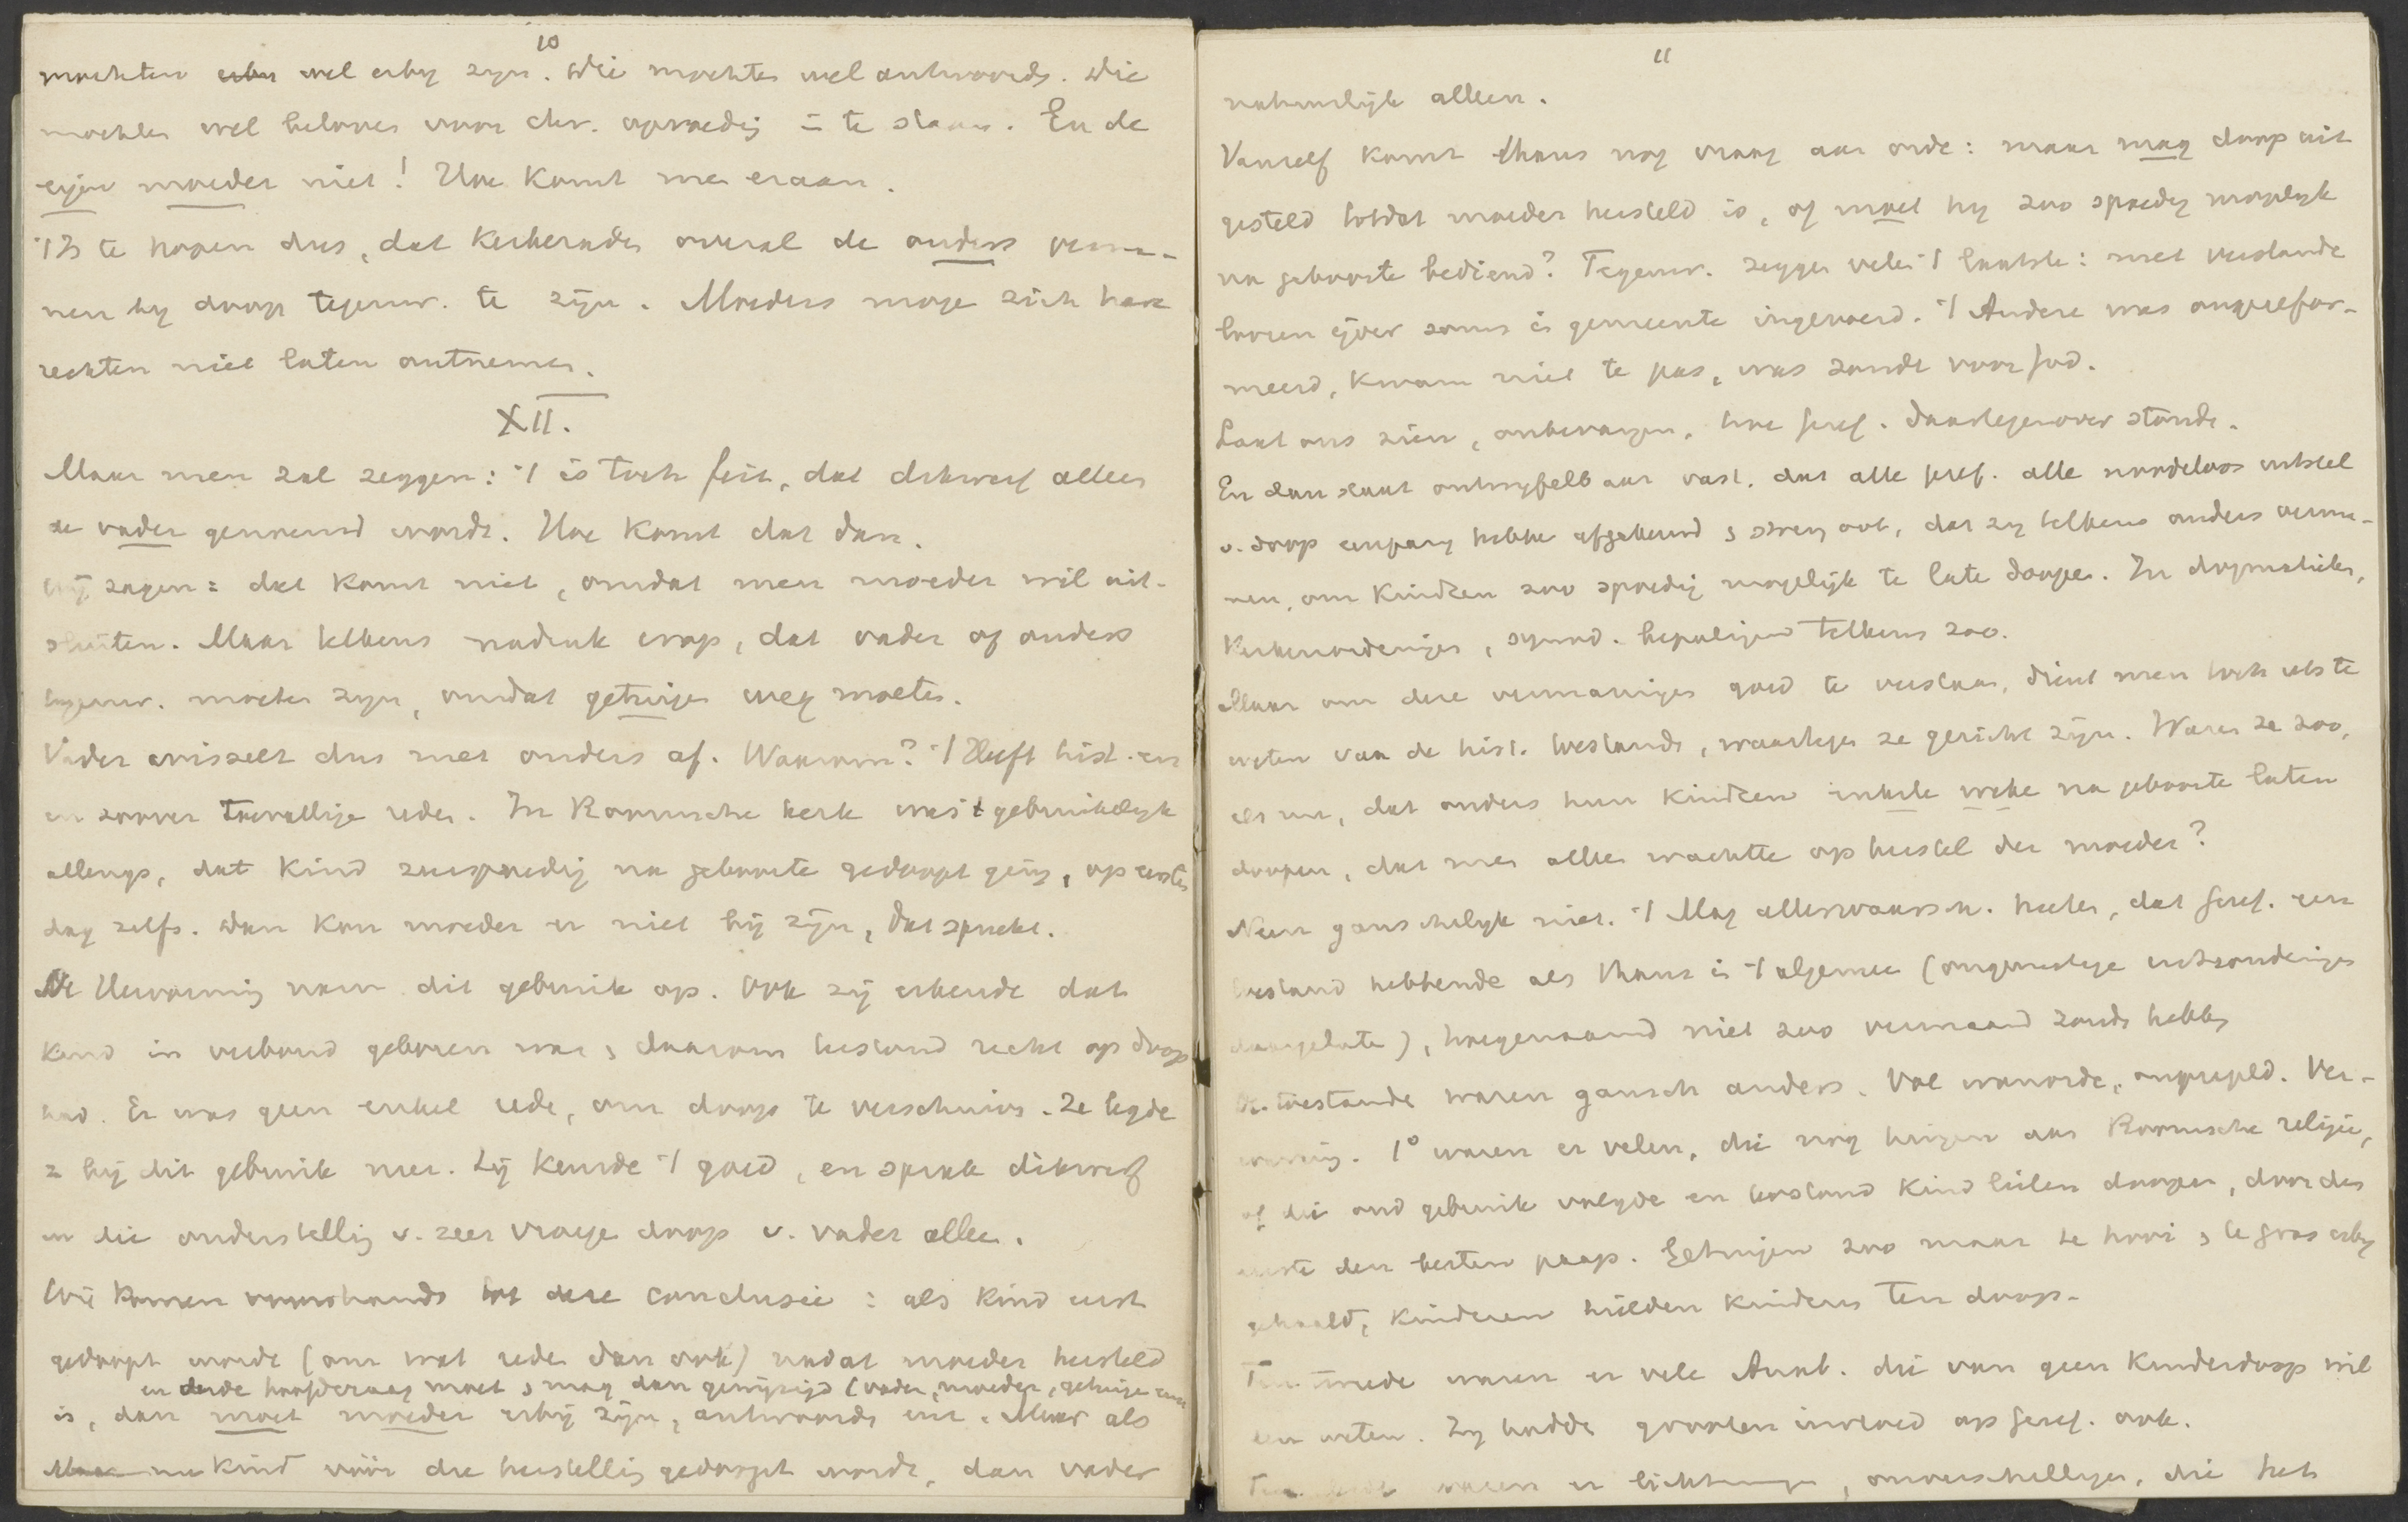 10
mochten wel erby zyn. Die mochten wel antwoords. Die
mochten wel beloven voor chr. opvoedig in te staan. En de
eigen moeder niet! Hoe komt me eraan.
't Is te hopen dus, dat kerkerade overal de ouders verma-
nen by doop tegenw. te zijn. Moeders moge zich hare
rechten niet laten ontnemen.
XII.
Maar men zal zeggen: 't is toch feit, dat dikwerf alleen
de vader genoemd wordt. Hoe komt dat dan.
Wij zagen: dat komt niet, omdat men moeder wil uit-
sluiten. Maar telkens nadruk erop, dat vader of ouders
tegenw. moeten zyn, omdat getuigen weg moeten.
Vader wisselt dus met ouders af. Waarom? 't Heeft hist. en
in zoover toevallige reden. In Roomsche kerk was 't gebruikelyk
allengs, dat kind zeer spoedig na geboorte gedoopt ging, op eersten
dag zelfs. Dan kon moeder er niet bij zijn, dat spreekt.
De Hervorming nam dit gebruik op. Ook zij erkende dat
kind in verbond geboren was, daarom terstond recht op doop
had. Er was geen enkel rede, om doop te verschuiven. Ze legde
z bij dit gebruik neer. Zij keurde 't goed, en sprak dikwerf
in die onderstellig v. zeer vroege doop v. vader alleen.
Wij komen voorshands tot deze conclusie: als kind eerst
gedoopt wordt (om wat rede dan ook) nadat moeder hersteld
en derde hoofdvraag moet, mag dan gewijzigd (vader, moeder, getuige
is, dan moet moeder erbij zijn, antwoorde enz. Maar als
kind vóór die herstellig gedoopt wordt, dan vader
11
natuurlijk alleen.
Vanzelf komt thans nog vraag aan orde: maar mag doop uit
gesteld totdat moeder hersteld is, of moet hy zoo spoedig mogelyk
na geboorte bediend? Tegenw. zeggen velen 't laatste: met verstande
loozen ijver soms in gemeente ingevoerd. 't Andere was ongerefor-
meerd, kwam niet te pas, was zonde voor God.
Laat ons zien, onbevangen, hoe Geref. daartegenover stonde.
En dan staat ontwyfelbaar vast, dat alle Geref. alle noodeloos uitstel
v. doop eenparig hebbe afgekeurd, streng ook, dat zy telkens ouders verma-
nen, om kindren zoo spoedig mogelijk te late doopen. In dogmatieken,
kerkenordeningen, synod. bepalingen telkens zoo.
Maar om deze vermaningen goed te verstaan, dient men toch iets te
weten van de hist. toestands, waartegen ze gericht zijn. Waren ze zoo,
als nu, dat ouders hun kindren enkele weke na geboorte laten
doopen, dat men alleen wachtte op herstel der moeder?
Neen ganschelyk niet. 't Mag allerwaarsch. heeten, dat Geref. een
toestand hebbende als thans in 't algemeen (ongunstige uitzonderingen
daargelate), hoegenaamd niet zoo vermaand zoude hebben
De toestande waren gansch anders. Vol wanorde, ongeregeld. Ver-
warring. 1° waren er velen, die nog hingen aan Roomsche religie,
of die oud gebruik volgde en terstond kind lieten doopen, door den
eerste den besten paap. Getuigen zoo maar te hooi, te gras erby
gehaald, kinderen hielden kinders ten doop.
Ten tweede waren er vele Anab. die van geen kinderdoop wil
den weten. Zy hadde grooten invloed op Geref. ook.
Ten derde waren er , onverschilligen, die het